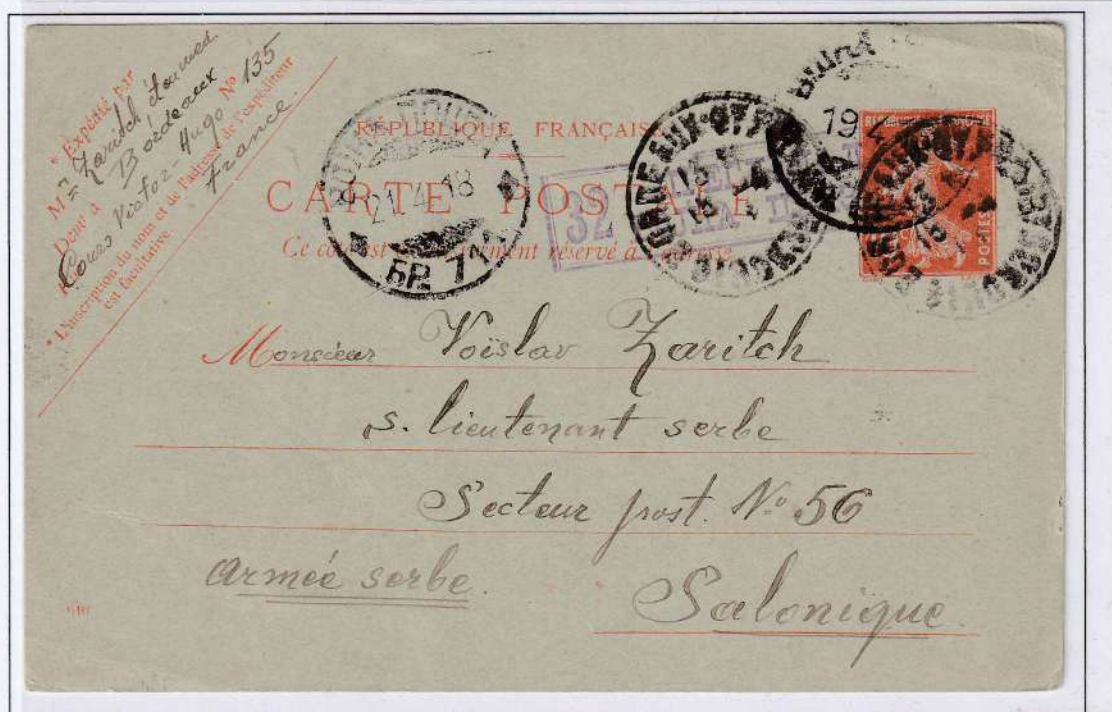 * Expédié par
M⁼ Zaritch étud. med.
Demt à Bordeaux
Cours Victor-Hugo N° 135
France.
* L'inscription du nom et de l'adresse de l'expéditeur
est facultative.
RÉPUBLIQUE FRANÇAISE
CARTE POSTALE
Ce côté est exclusivement réservé à l'adresse
21.4.18
БР. 711
32
BORDEAUX-ST
19
POSTES
Monsieur Voïslav Zaritch
s. lieutenant serbe
Secteur post. No 56
armée serbe.
Salonique